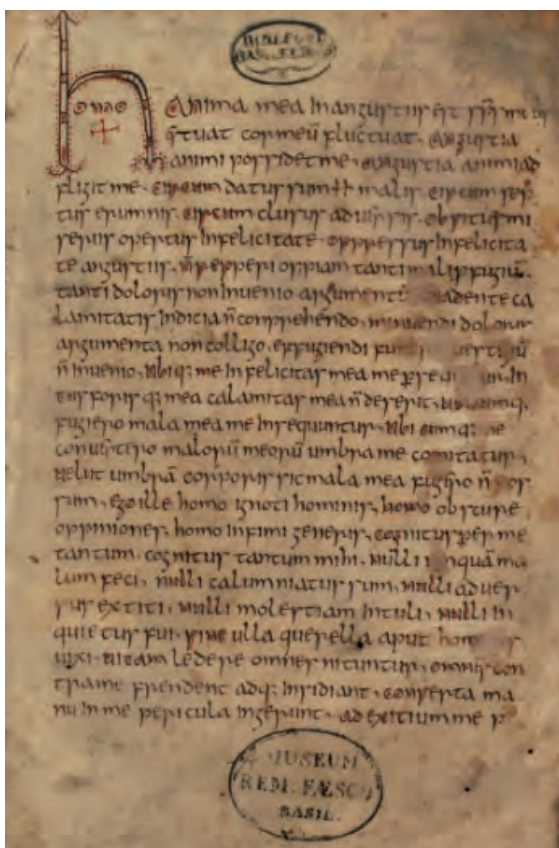 BIBLIOT
homo Anima mea in angustiis est sps meus
estuat cor meū fluctuat. angustia
animi possidet me. angustia animi ad
fligit me. circum datus sum malis circum sep
tus erumnis. circum clusus aduersis. obsitus mi
seriis opertus infelicitate. oppressus infelicita
te angustiis. ñ repperi uspiam tanti mali pfugiū.
tanti doloris non inuenio argumentū adende ca
lamitatis indicia ñ conprehendo. minuendi doloris
argumenta non colligo. effugiendi uestigiū
ñ inuenio. ubiq; me infelicitas mea me perseq in
q; me calamitas mea ñ deserit.
fugiero mala mea me insequuntur. ubi cumq; me
conuertero malorū meorū umbra me comitatur.
uelut umbrā corporis sic mala mea fugero ñ pos
sum. ego ille homo ignoti nominis. homo obscure
oppiniones. homo infimi generis. cognitus per me
tantum. cognitus tantum mihi. nulli umquā ma
lum feci. nulli calumniatus sum. nulli aduer
sus extiti. nulli molestiam intuli. nulli in
quietus fui. sine ulla querella aput homines
uixi. uitam ledere omnes nituntur. omnes con
tra me frendent adq; insidiant. conserta ma
nu in me pericula ingerunt. ad exitium me p
MUSEUM
REM. FÆSCH
BASIL.